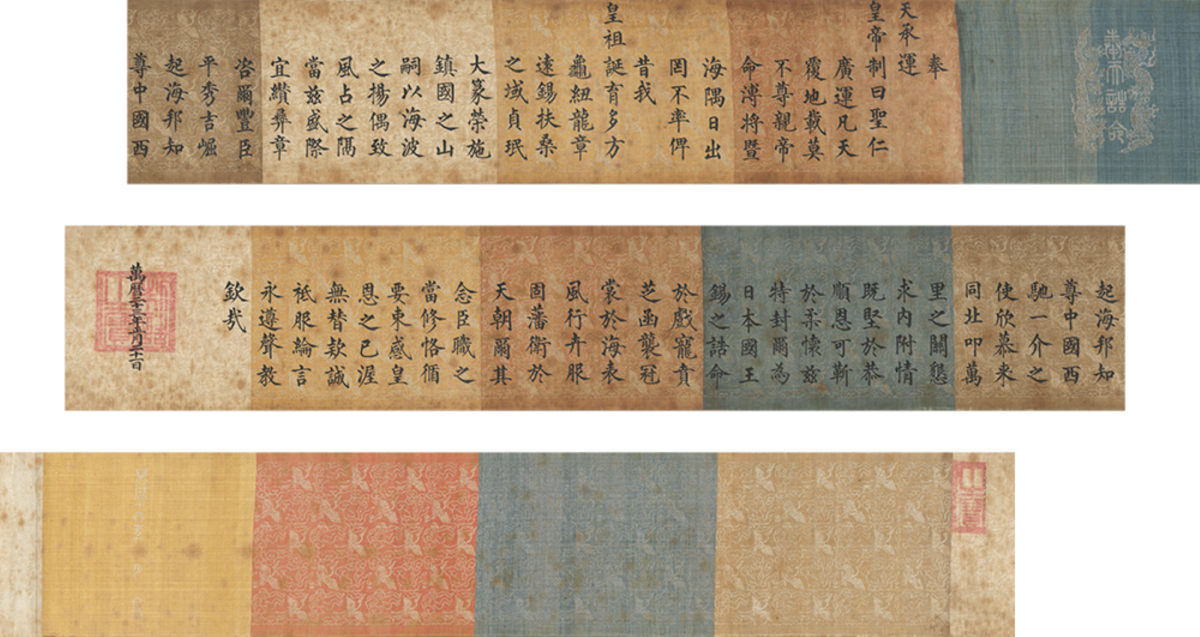 奉天誥命
奉
天承運
皇帝制曰聖仁
廣運凡天
覆地載莫
不尊親帝
命溥將暨
海隅日出
罔不率俾
昔我
皇祖誕育多方
龜紐龍章
遠錫扶桑
之域貞珉
大篆榮施
鎮國之山
嗣以海波
之揚偶致
風占之隔
當茲盛際
宜纘彝章
咨爾豐臣
平秀吉崛
起海邦知
尊中國西
起海邦知
尊中國西
馳一介之
使欣慕来
同北叩萬
里之關懇
求内附情
既堅於恭
順恩可靳
於柔懷茲
特封爾為
日本國王
錫之誥命
於戲寵賁
芝函襲冠
裳於海表
風行卉服
固藩衛於
天朝爾其
念臣職之
當修恪循
要束感皇
恩之已渥
無替款誠
祗服綸言
永遵聲教
欽哉
萬曆二十三年正月二十一日